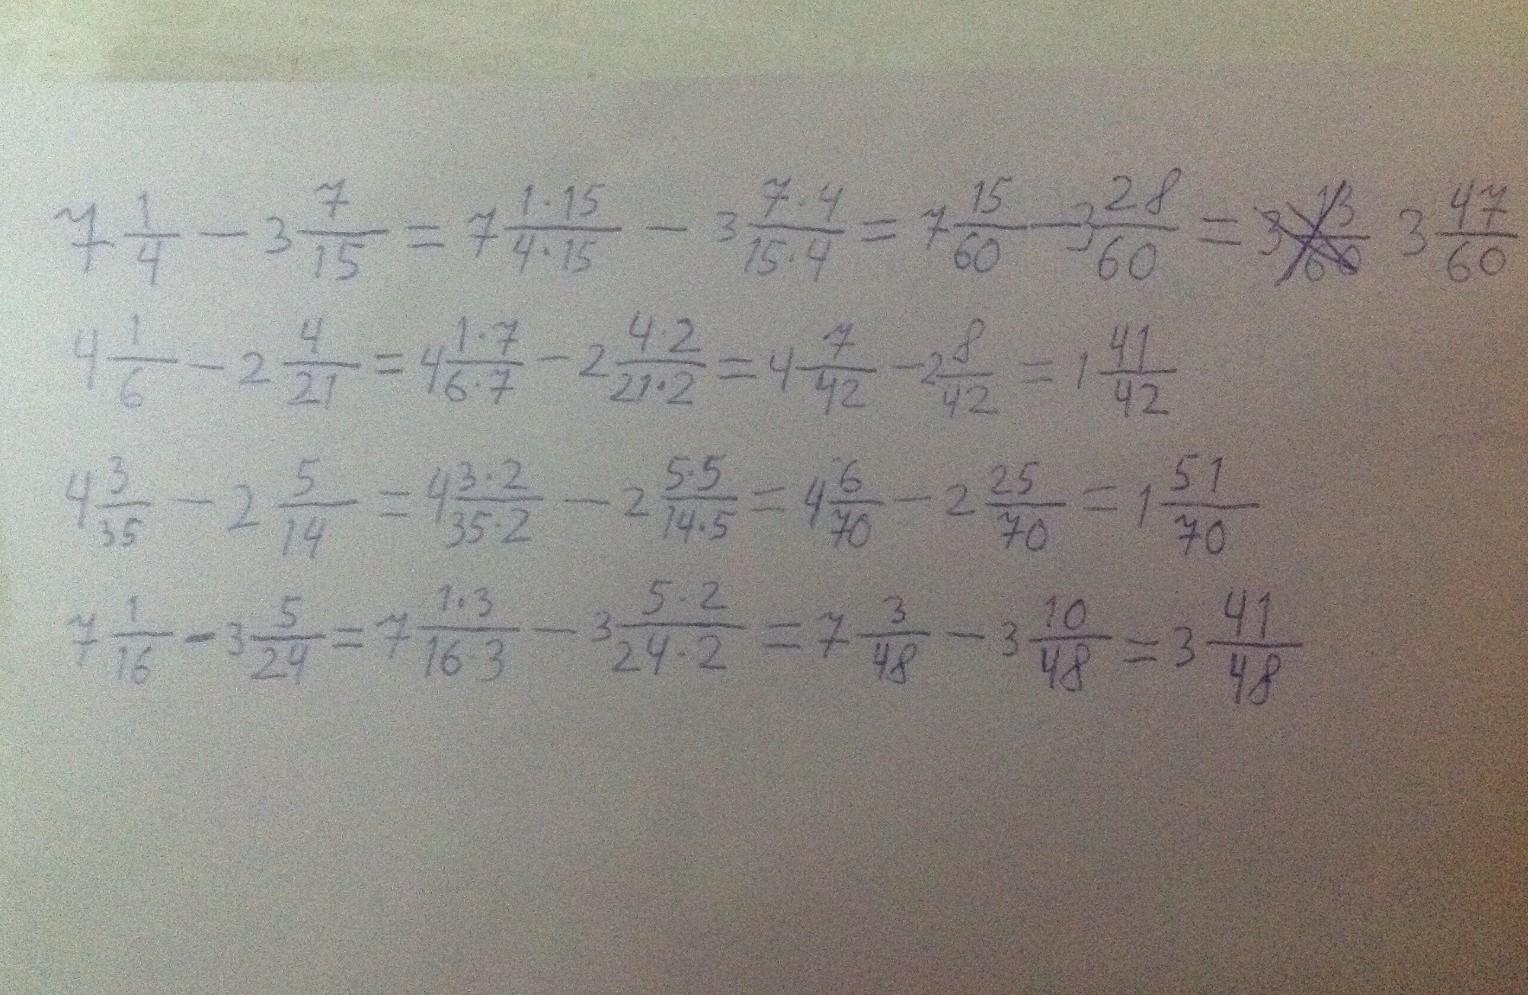 7 1/4 - 3 7/15 = 7 1·15/4·15 - 3 7·4/15·4 = 7 15/60 - 3 28/60 = 3 13/60 3 47/60
4 1/6 - 2 4/21 = 4 1·7/6·7 - 2 4·2/21·2 = 4 7/42 - 2 8/42 = 1 41/42
4 3/35 - 2 5/14 = 4 3·2/35·2 - 2 5·5/14·5 = 4 6/70 - 2 25/70 = 1 51/70
7 1/16 - 3 5/24 = 7 1·3/16·3 - 3 5·2/24·2 = 7 3/48 - 3 10/48 = 3 41/48